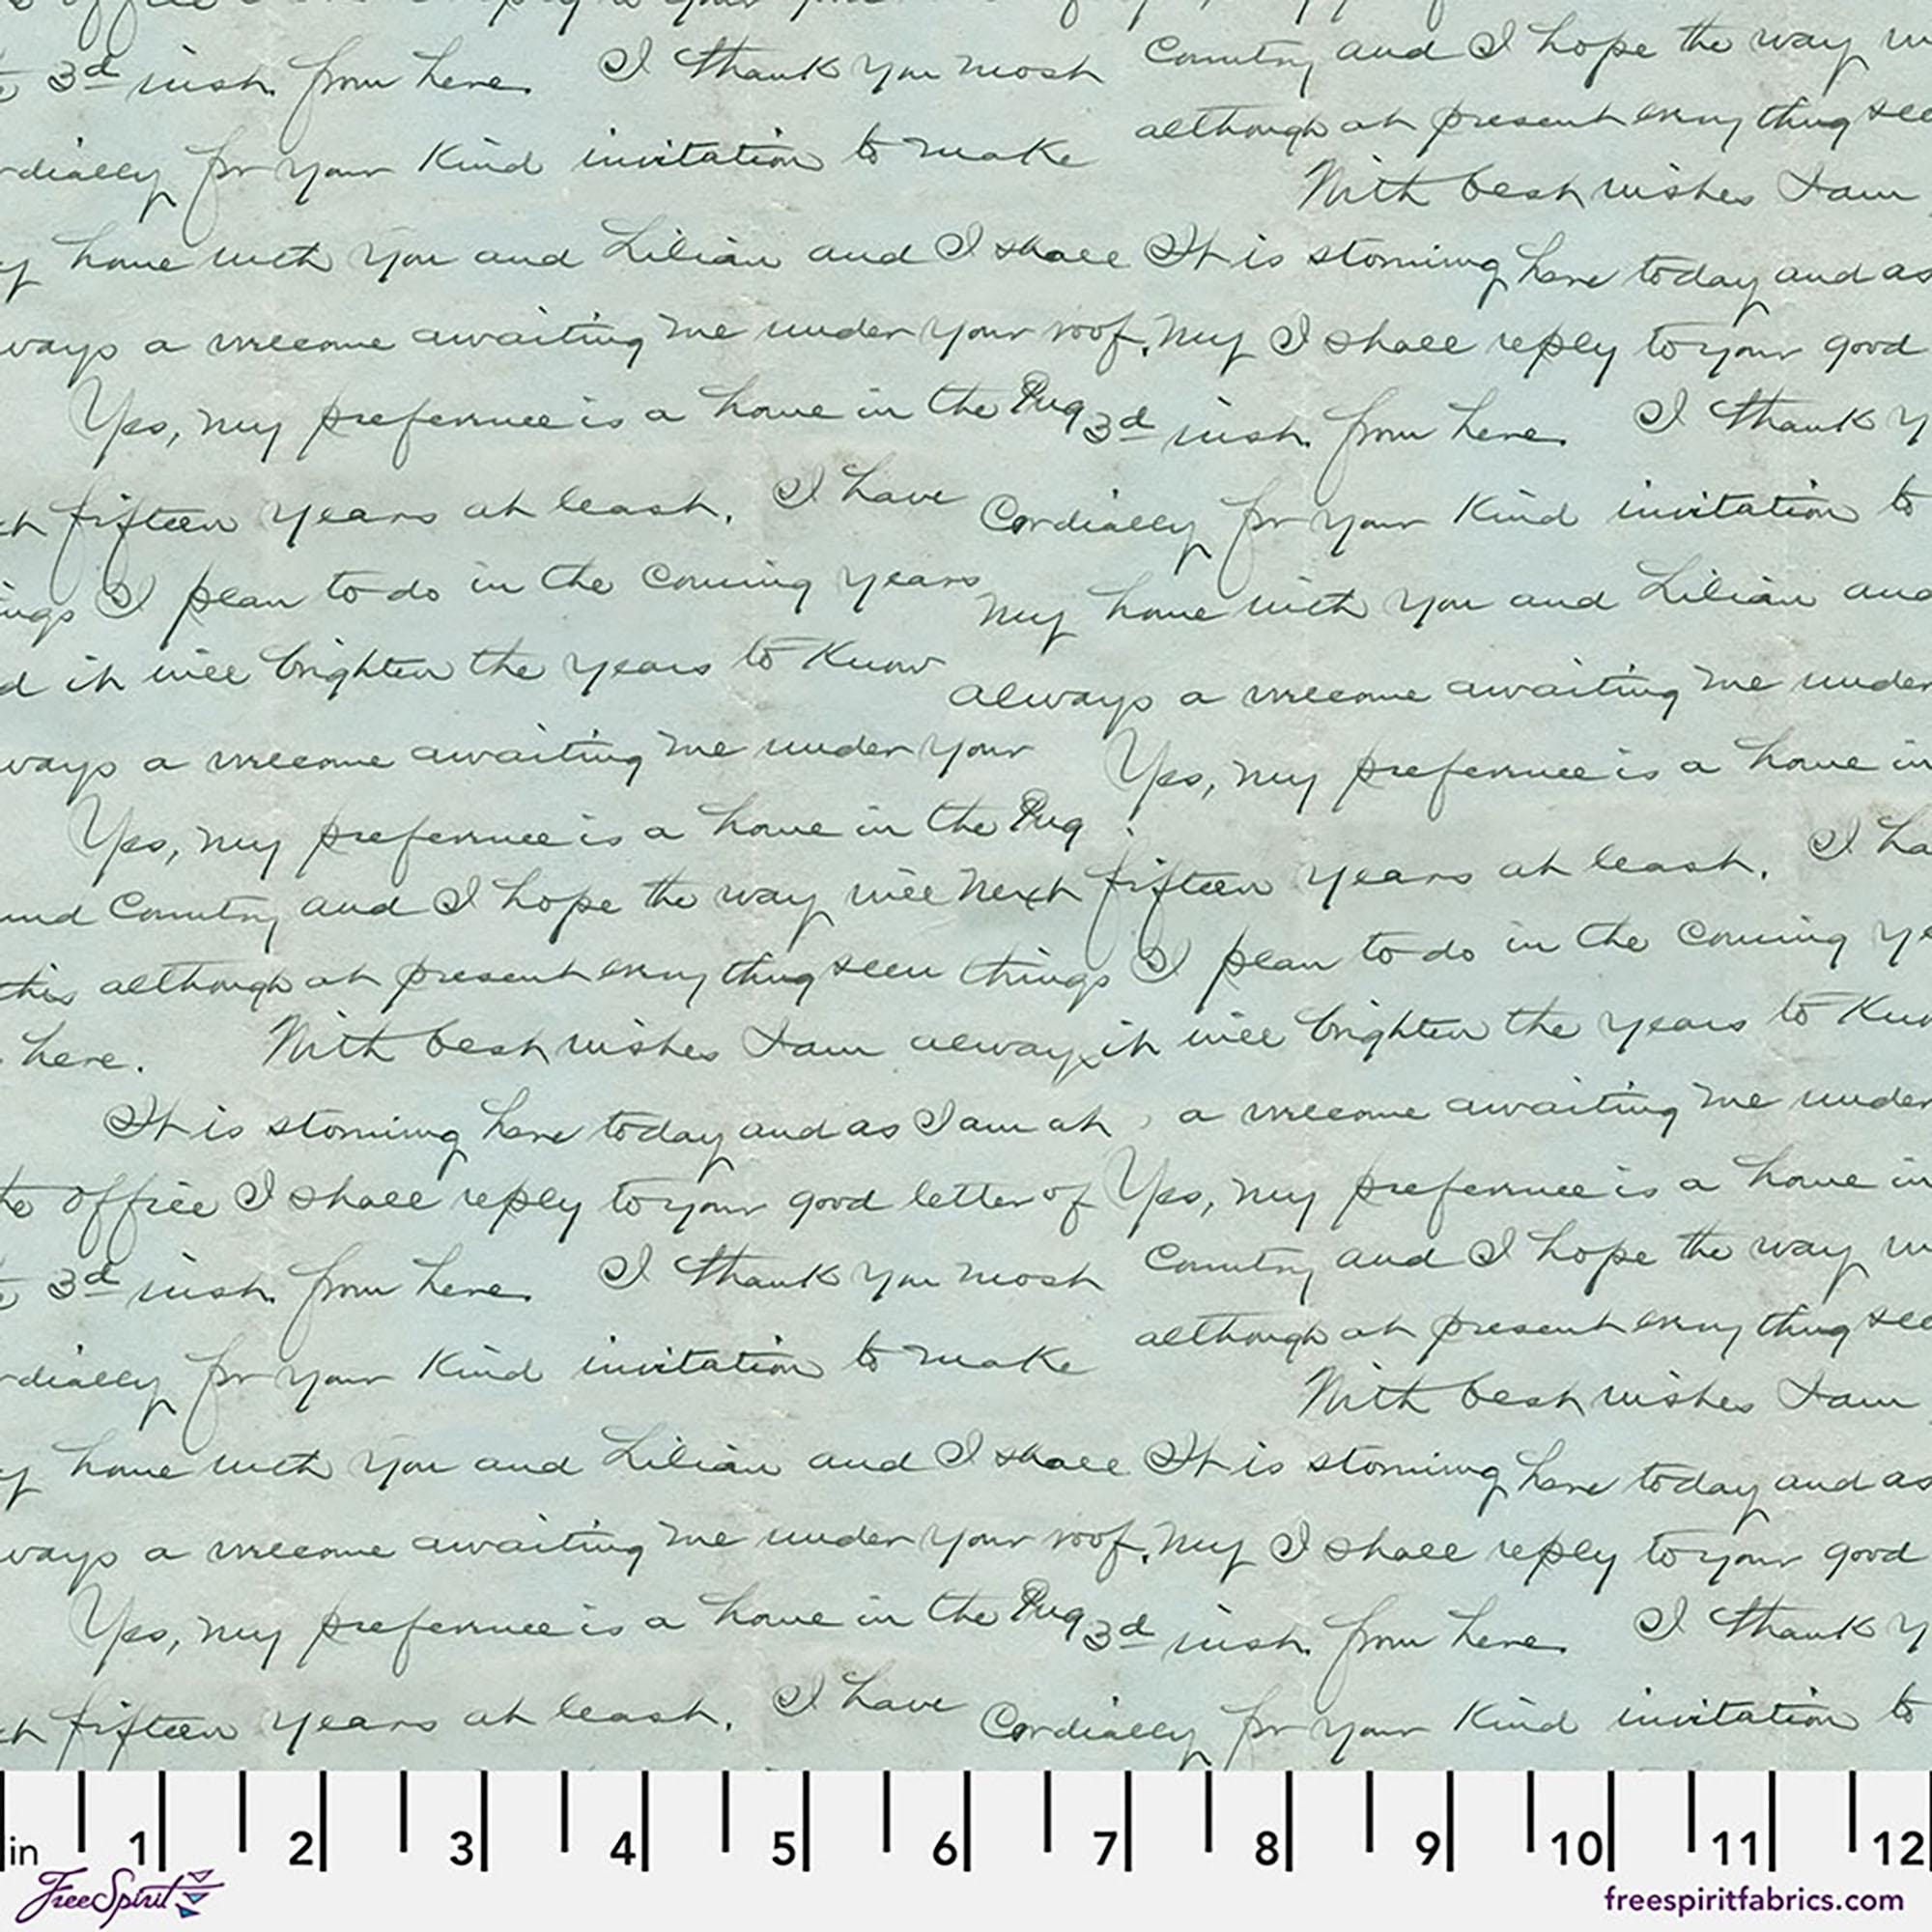 3d inst. from here. I thank you most Country and I hope the way
rdially for your kind invitation to make although at present every thing see
With best wishes I am
home with you and Lilian and I shall It is storming here today and as
ways a welcome awaiting me under your roof. My I shall reply to your good
Yes, my preference is a home in the Pug 3d inst. from here. I thank y
fifteen years at least. I have Cordially for your kind invitation to
ings I plan to do in the coming years my home with you and Lilian and
d it will brighten the years to know always a welcome awaiting me under
ways a welcome awaiting me under your Yes, my preference is a home in
Yes, my preference is a home in the Pug
und Country and I hope the way will next fifteen years at least. I ha
this although at present every thing seem things I plan to do in the coming ye
here. With best wishes I am always it will brighten the years to kno
It is storming here today and as I am at a welcome awaiting me under
the office I shall reply to your good letter of Yes, my preference is a home in
3d inst. from here. I thank you most Country and I hope the way
rdially for your kind invitation to make although at present every thing see
With best wishes I am
home with you and Lilian and I shall It is storming here today and as
ways a welcome awaiting me under your roof. My I shall reply to your good
Yes, my preference is a home in the Pug 3d inst. from here. I thank y
fifteen years at least. I have Cordially for your kind invitation to
in 1 2 3 4 5 6 7 8 9 10 11 12
FreeSpirit freespiritfabrics.com